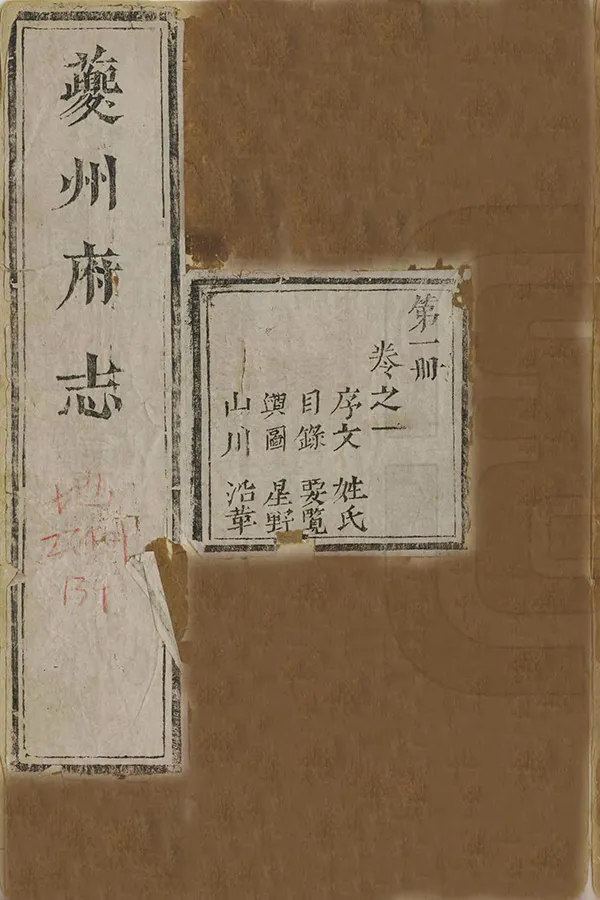 夔州府志
第一册
卷之一
序文 姓氏
目錄 要覽
輿圖 星野
山川 沿革